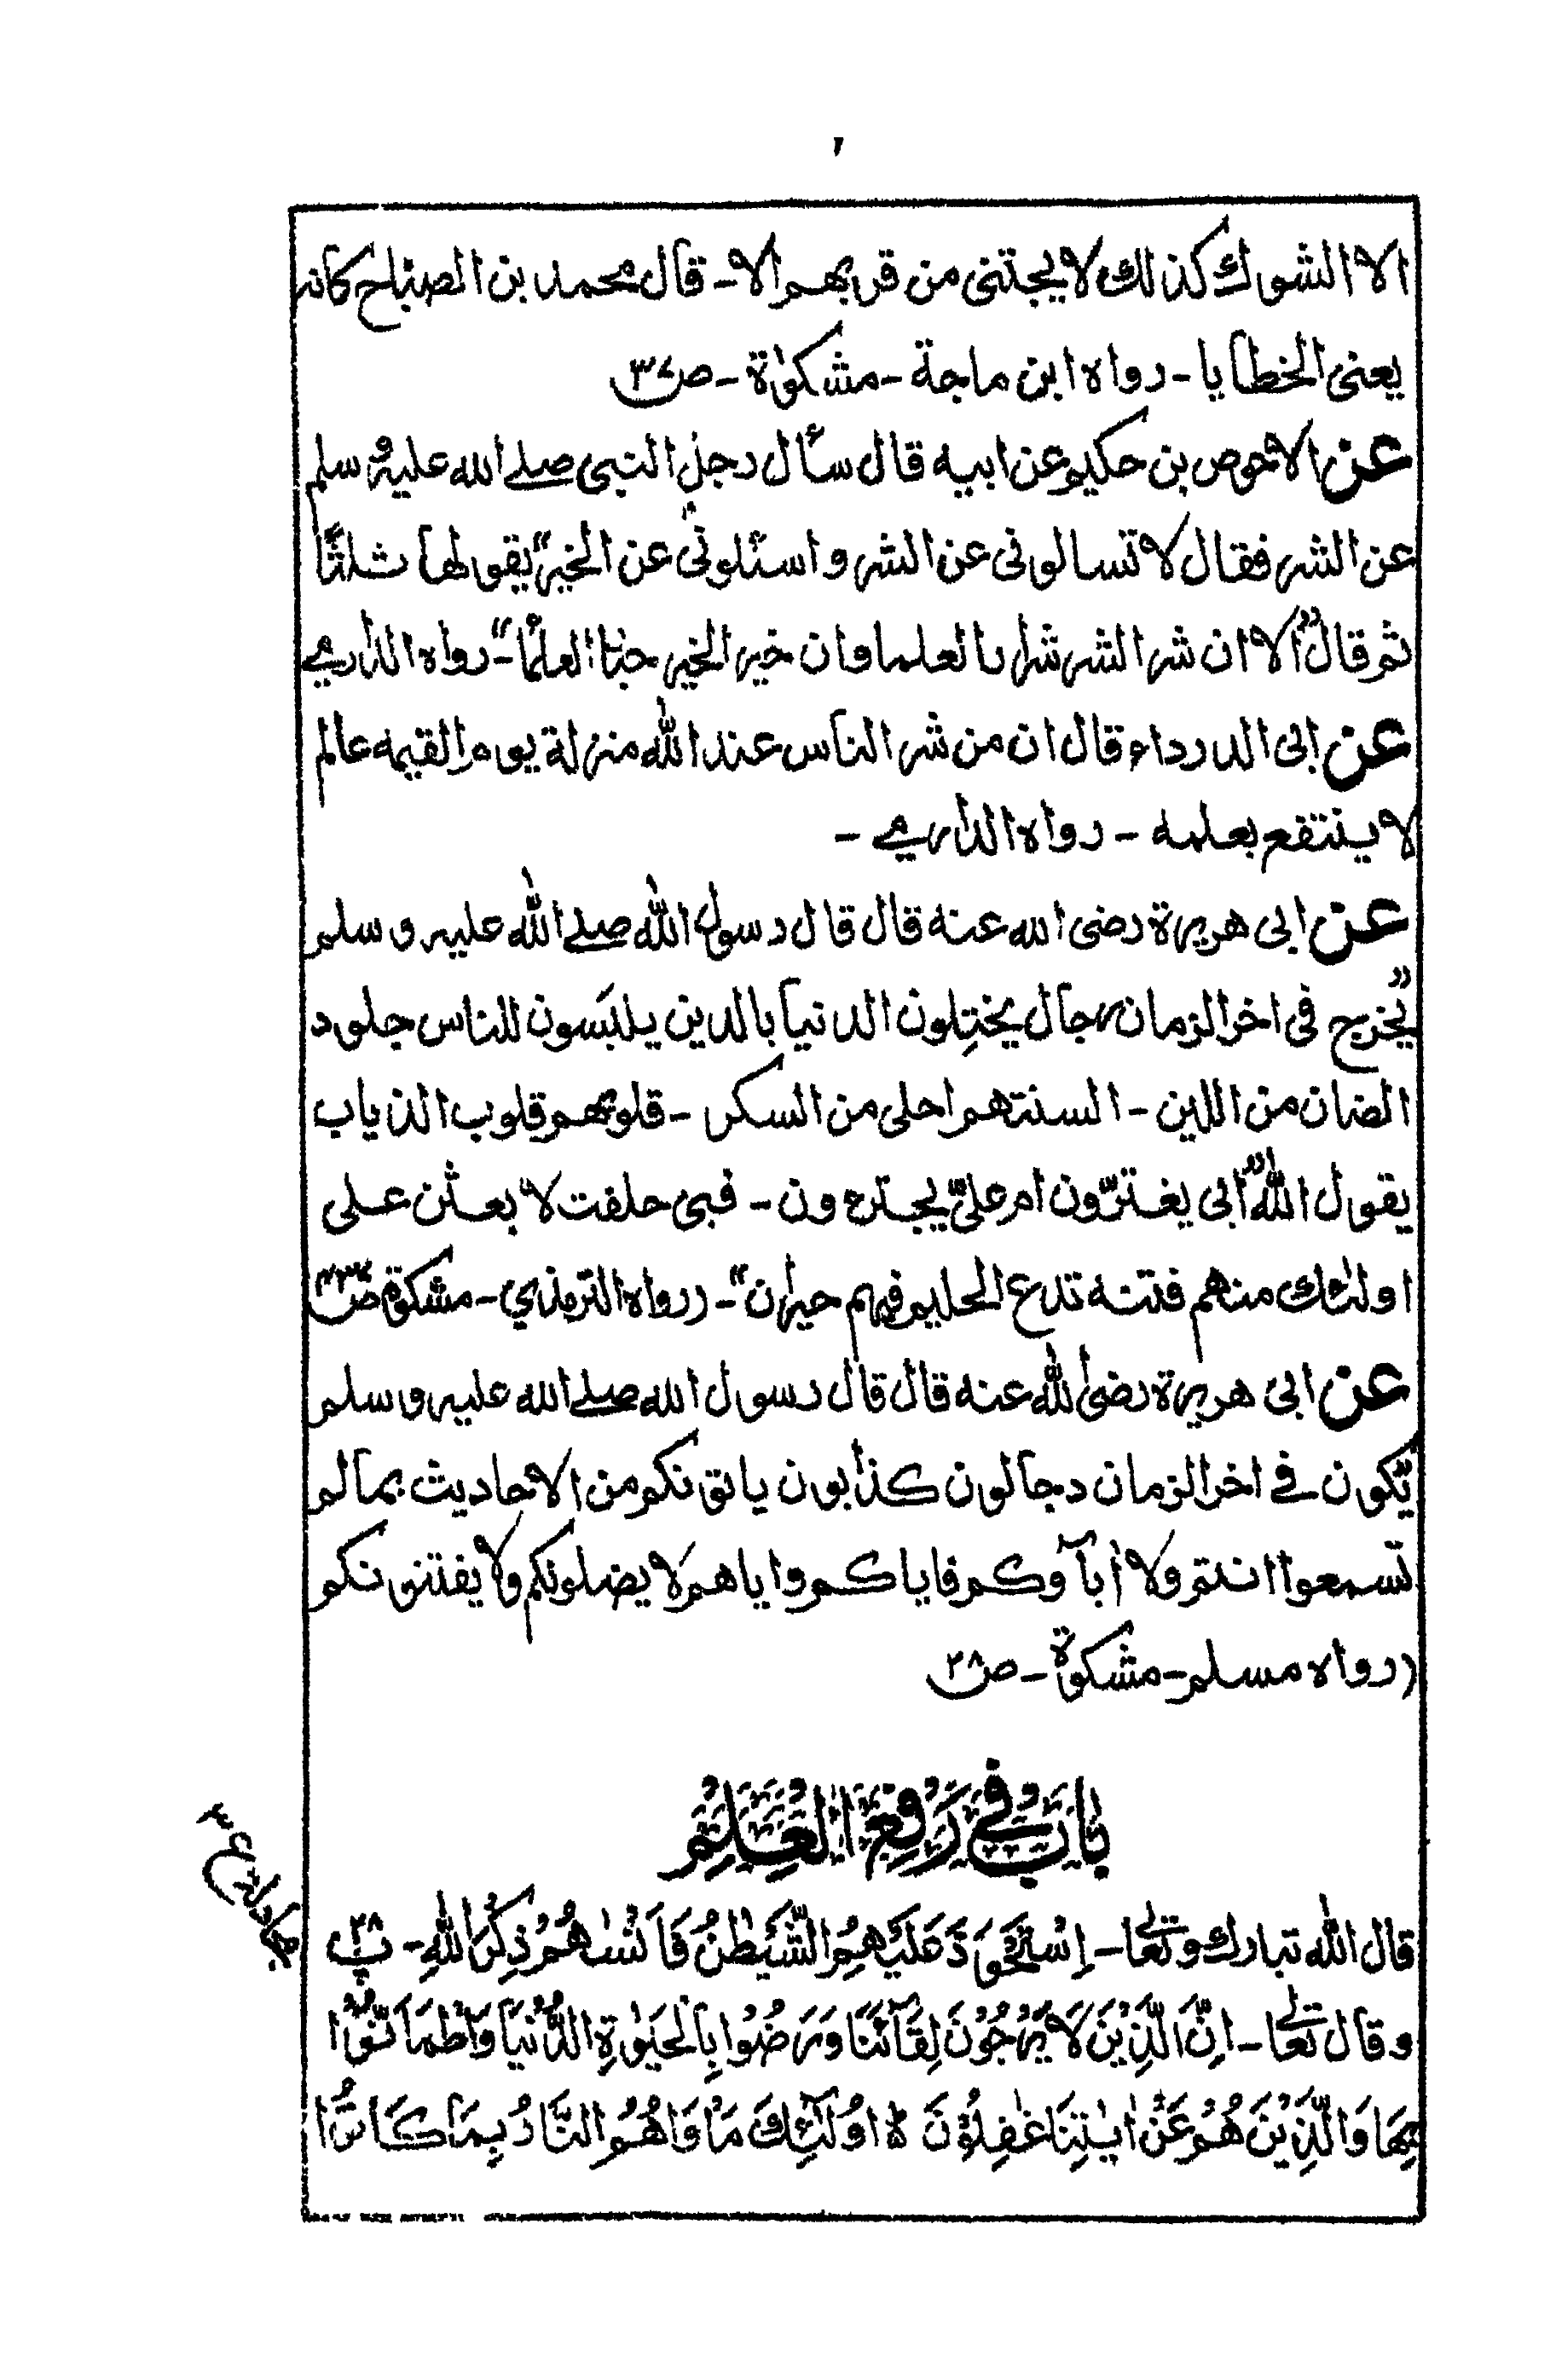 ٦
الا الشوك كذالك لا يجتنى من قربهم الا - قال محمد بن الصباح كانه
يعنى الخطايا - رواه ابن ماجة - مشكوٰة - ص٣٧
عن الاحوص بن حكيم عن ابيه قال سأل رجل النبى صلے الله عليه وسلم
عن الشر فقال لا تسالونى عن الشر واسئلونى عن الخير" يقولها ثلثًا
ثم قال "الا ان شر الشر شرار العلما وان خير الخير خيار العلماء" - رواه الدارمي
عن ابى الدرداء قال ان من شر الناس عند الله منزلة يوم القيمه عالم
لا ينتفع بعلمه - رواه الدارمي -
عن ابى هريرة رضى الله عنه قال قال رسول الله صلے الله عليه وسلم
"يخرج فى اخر الزمان رجال يختِلون الدنيا بالدين يلبَسون للناس جلود
الضان من اللين - السنتهم احلى من السكر - قلوبهم قلوب الذياب
يقول الله "ابى يغترّون ام علىّ يجترءون - فبى حلفت لا بعثن على
اولئك منهم فتنه تدع الحليم فيهم حيران" - (رواه الترمذي - مشكوة ص
عن ابى هريرة رضى الله عنه قال قال رسول الله صلے الله عليه وسلم
يّكون فے اخر الزمان دجالون كذابون ياتونكم من الاحاديث بمالم
تسمعوا انتم ولا اٰباۤوكم فاياكم واياهم لا يضلونكم ولا يفتنونكم
(رواه مسلم - مشكوة - ص٢٨
بَابٌ فِي رَفْعِ الْعِلْمِ
قال الله تبارك وتعالٰى - اِسْتَحْوَذَ عَلَيْهِمُ الشَّيْطٰنُ فَاَنْسٰهُمْ ذِكْرَ اللهِ - پ٢٨
وقال تعالٰى - اِنَّ الَّذِيْنَ لَا يَرْجُوْنَ لِقَآئَنَا وَرَضُوْا بِالْحَيٰوةِ الدُّنْيَا وَاطْمَاَنُّوْا
بِهَا وَالَّذِيْنَ هُمْ عَنْ اٰيٰتِنَا غٰفِلُوْنَ ۙ اُولٰٓئِكَ مَاْوَاهُمُ النَّارُ بِمَا كَانُوْا